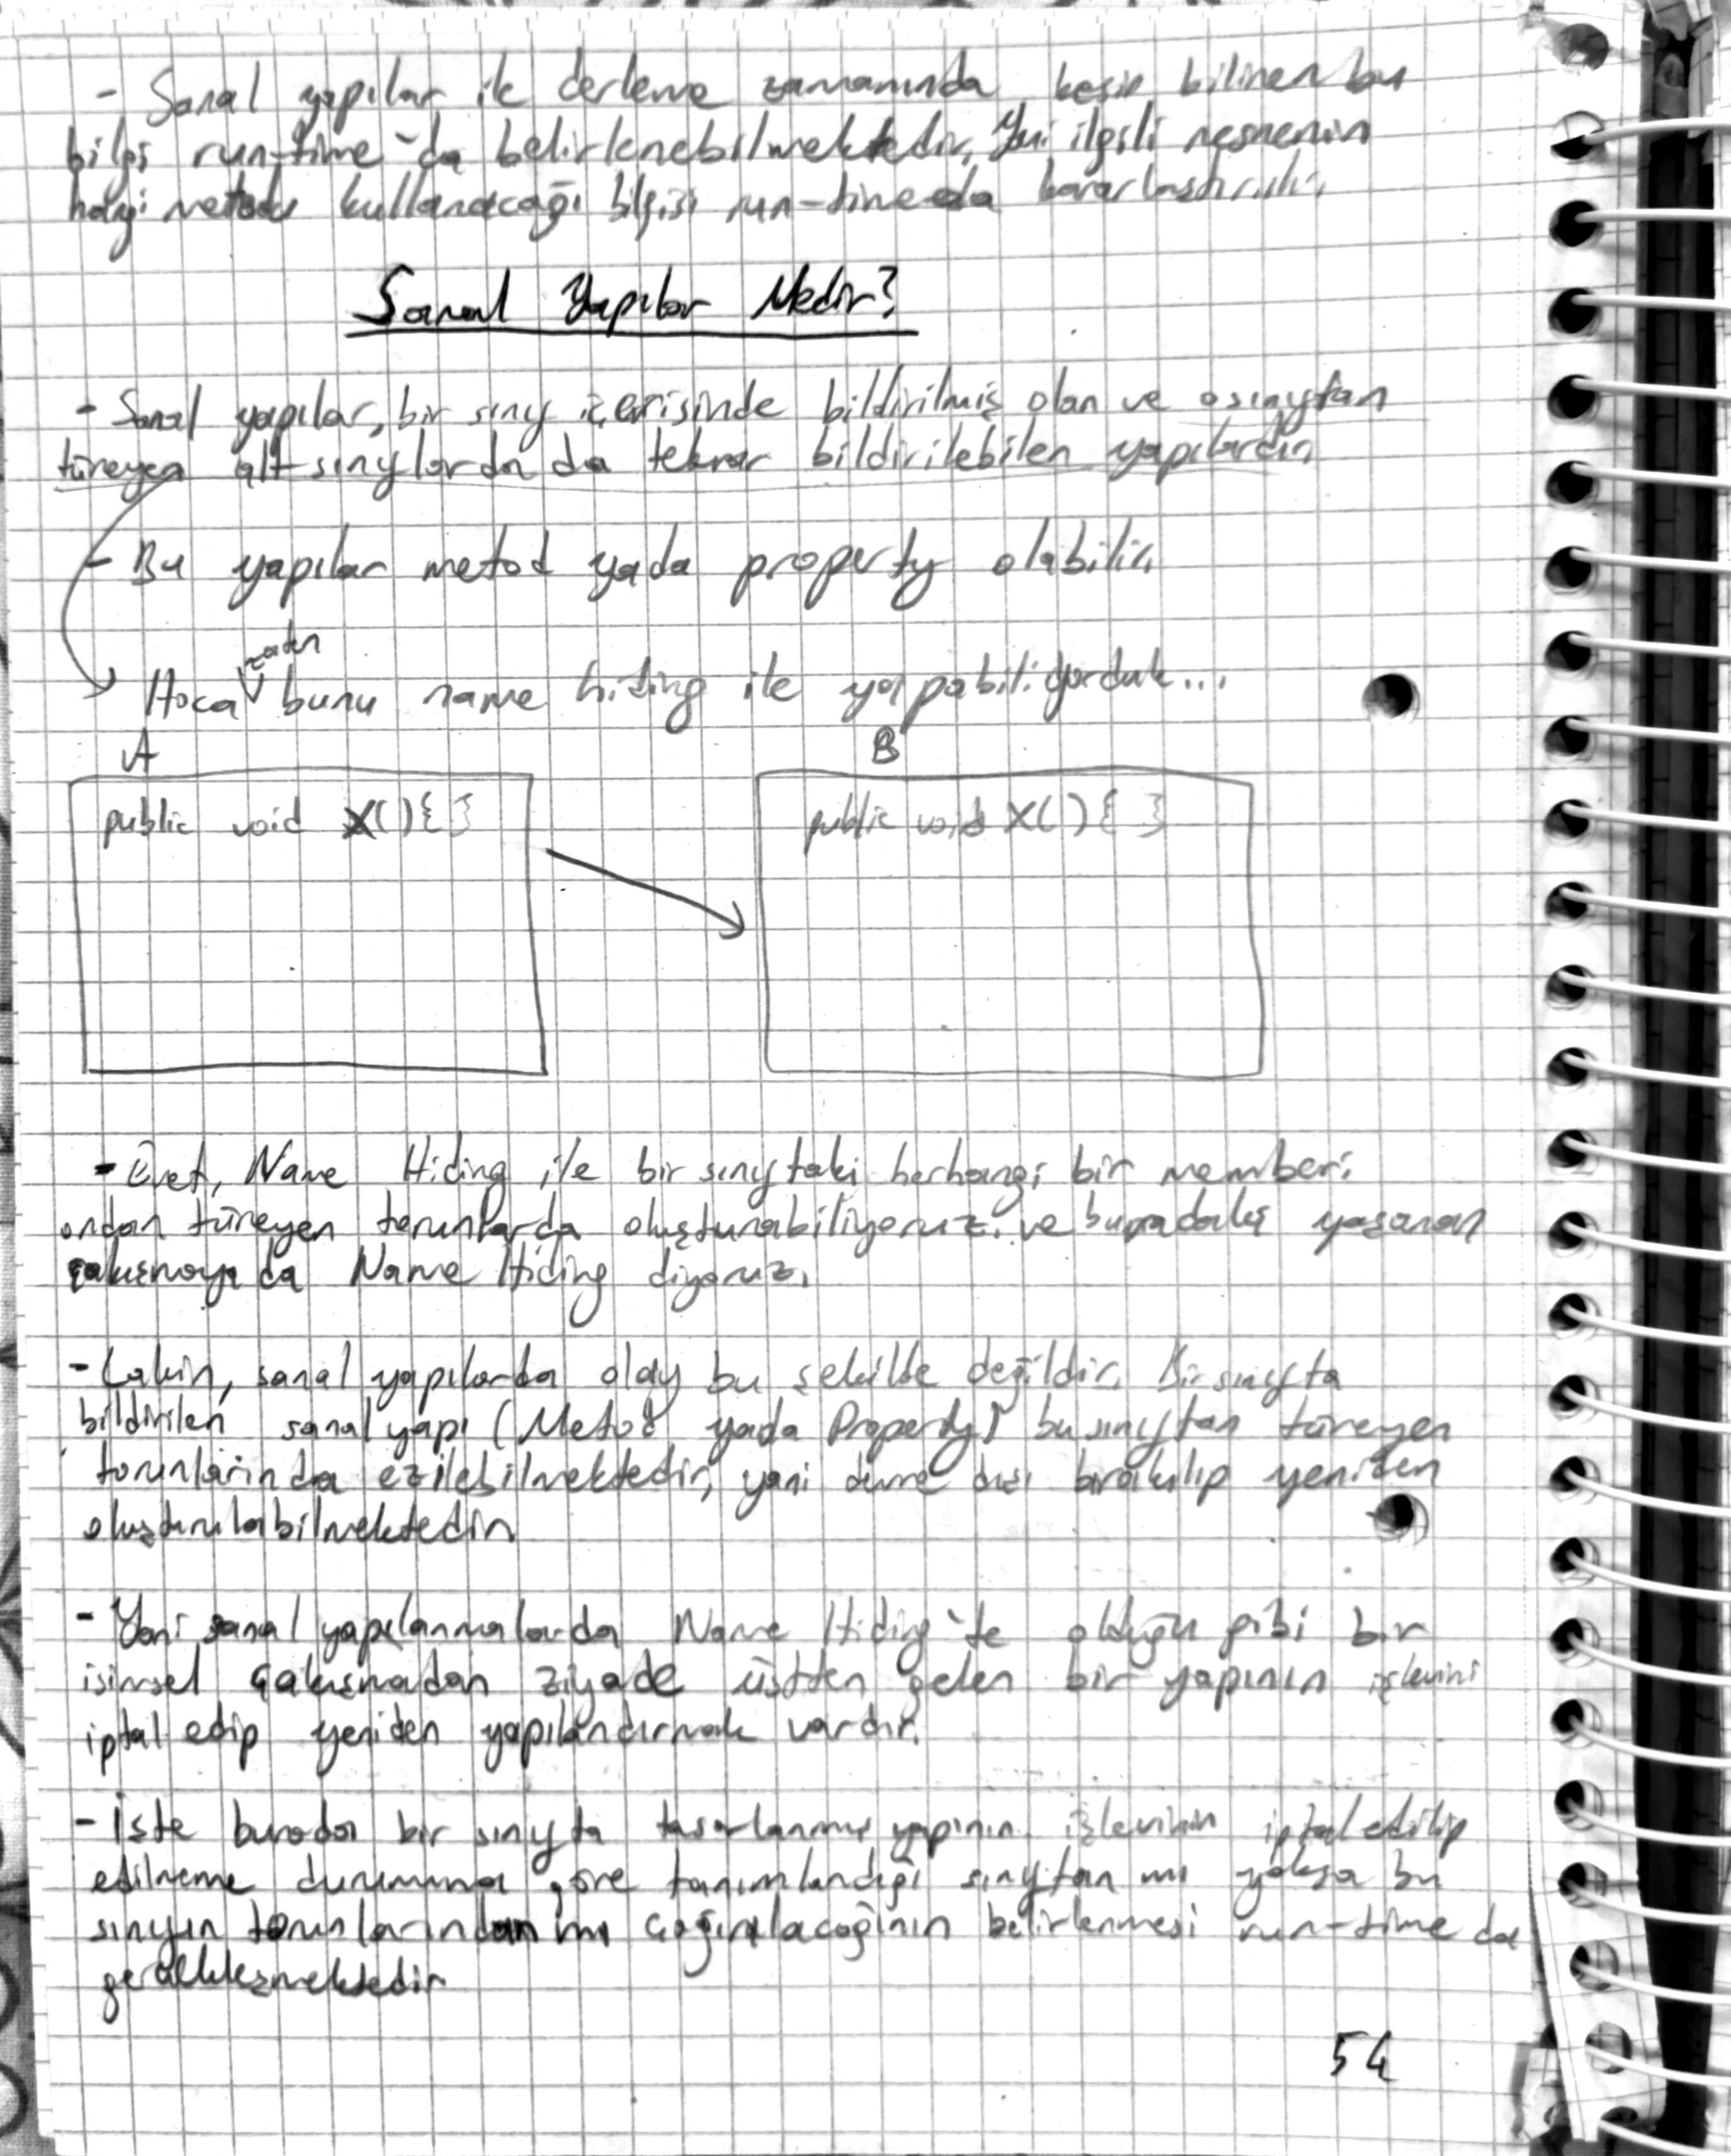 - Sanal yapılar ile derleme zamanında kesin bilinen bu
bilgi run-time'da belirlenebilmektedir. Yani ilgili nesnenin
hangi metodu kullanacağı bilgisi run-time da kararlaştırılır.
Sanal Yapılar Nedir?
- Sanal yapılar, bir sınıf içerisinde bildirilmiş olan ve o sınıftan
türeyen alt sınıflarda da tekrar bildirilebilen yapılardır.
- Bu yapılar metod yada property olabilir.
zaten
Hoca bunu name hiding ile yapabiliyorduk...
A
B
public void X(){ }
public void X(){ }
- Evet, Name Hiding ile bir sınıftaki herhangi bir memberi
ondan türeyen torunlarda oluşturabiliyoruz. ve buradaki yaşanan
çakışmaya da Name Hiding diyoruz.
- Lakin, sanal yapılarda olay bu şekilde değildir. Bir sınıfta
bildirilen sanal yapı (Metod yada Property) bu sınıftan türeyen
torunlarında ezilebilmektedir, yani devre dışı bırakılıp yeniden
oluşturulabilmektedir.
- Yani sanal yapılanmalarda Name Hiding'te olduğu gibi bir
isimsel çakışmadan ziyade üstten gelen bir yapının işlevini
iptal edip yeniden yapılandırmak vardır.
- İşte burada bir sınıfta tasarlanmış yapının işlevinin iptal edilip
edilmeme durumuna göre tanımlandığı sınıftan mı yoksa bu
sınıfın torunlarından mı çağırılacağının belirlenmesi run-time da
gerçekleşmektedir.
54